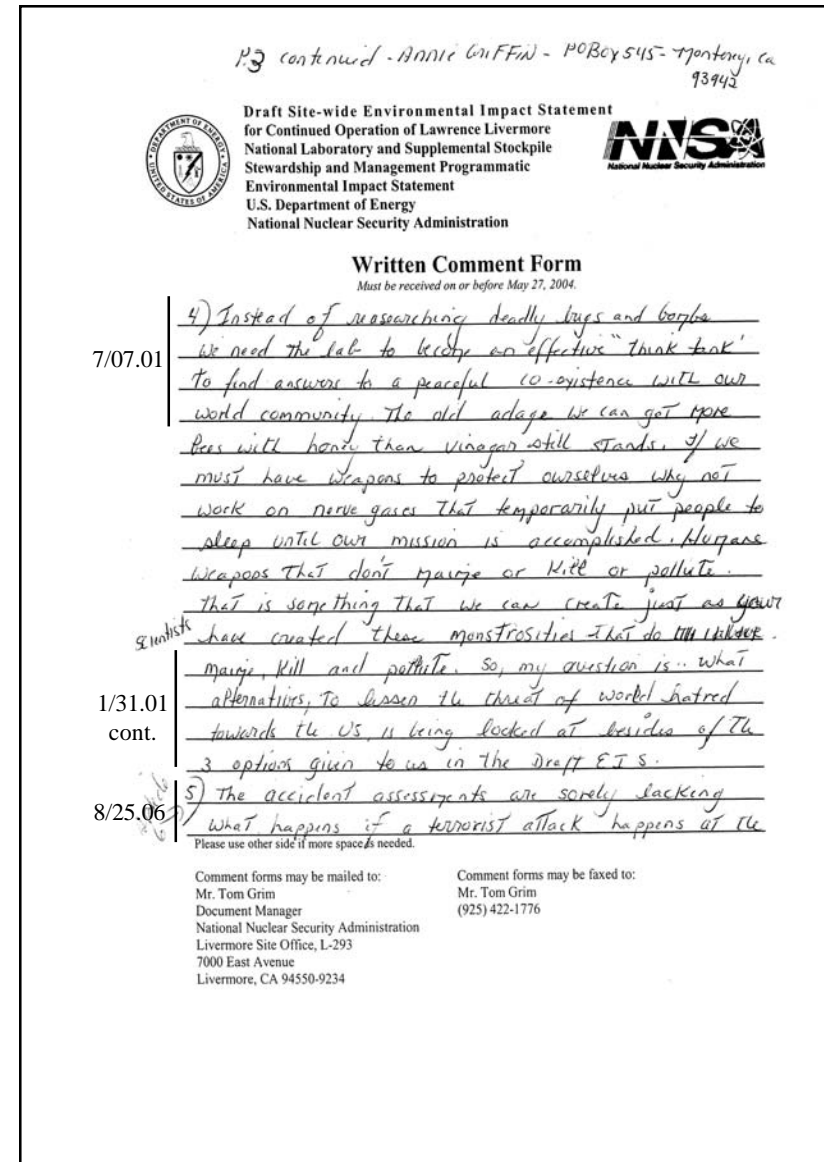 P.3 continued - ANNIE GRIFFIN - PO Box 545 - Monterey, Ca
93942
Draft Site-wide Environmental Impact Statement
for Continued Operation of Lawrence Livermore
National Laboratory and Supplemental Stockpile
Stewardship and Management Programmatic
Environmental Impact Statement
U.S. Department of Energy
National Nuclear Security Administration
DEPARTMENT OF ENERGY
UNITED STATES OF AMERICA
NNSA
National Nuclear Security Administration
Written Comment Form
Must be received on or before May 27, 2004.
7/07.01
4) Instead of reasearching deadly bugs and bombs
We need the lab to become an effective "think tank'
To find answers to a peaceful co-existence with our
world community. The old adage we can get more
bees with honey than vinegar still stands. If we
must have weapons to protect ourselves why not
work on nerve gases that temporarily put people to
sleep until our mission is accomplished. Humane
weapons that don't mairje or kill or pollute.
that is something that we can create just as your
scientists have created these monstrosities that do
mairje, kill and pollute. So, my question is.. what
1/31.01
cont.
alternatives, To lessen the threat of world hatred
towards the US, is being looked at besides of the
3 options given to us in the Draft EIS.
8/25.06
5) The accident assessments are sorely lacking
what happens if a terrorist attack happens at the
Please use other side if more space is needed.
Comment forms may be mailed to:
Mr. Tom Grim
Document Manager
National Nuclear Security Administration
Livermore Site Office, L-293
7000 East Avenue
Livermore, CA 94550-9234
Comment forms may be faxed to:
Mr. Tom Grim
(925) 422-1776